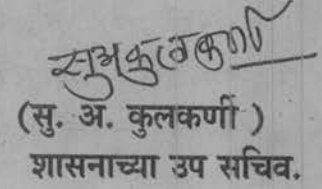 सुअकुलकर्णी
(सु. अ. कुलकर्णी )
शासनाच्या उप सचिव.